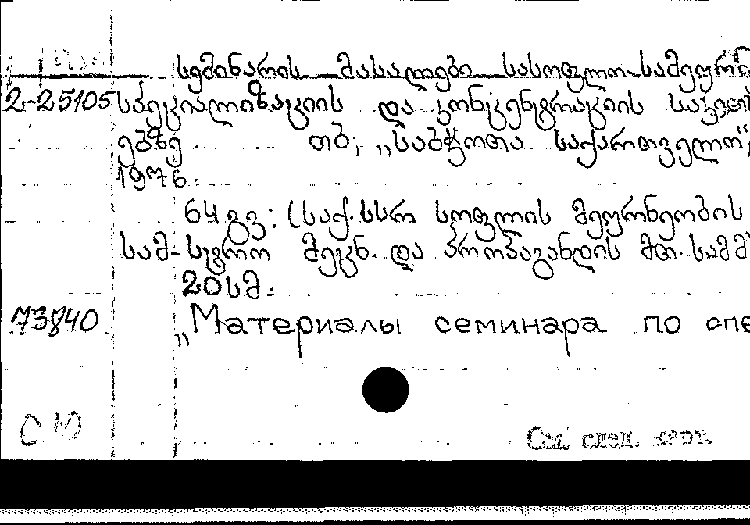 სემინარის მასალები სასოფლო-სამეურნ
2-25105 სპეციალიზაციის და კონცენტრაციის საკით
ებზე თბ, „საბჭოთა საქართველო“,
1976.
64 გვ: (საქ. სსრ სოფლის მეურნეობის
სამ-სტრო მეცნ. და პროპაგანდის მთ. სამმ
20 სმ.
73840 „Материалы семинара по спе